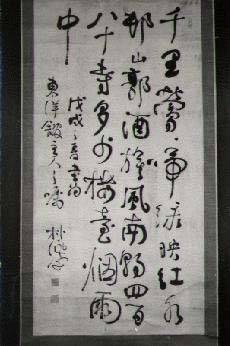 千里鶯啼綠映紅水
邨山郭酒旗風南朝四百
八十寺多少樓臺烟雨
中
戊戌之春書為
東洋館主人之嘱
林